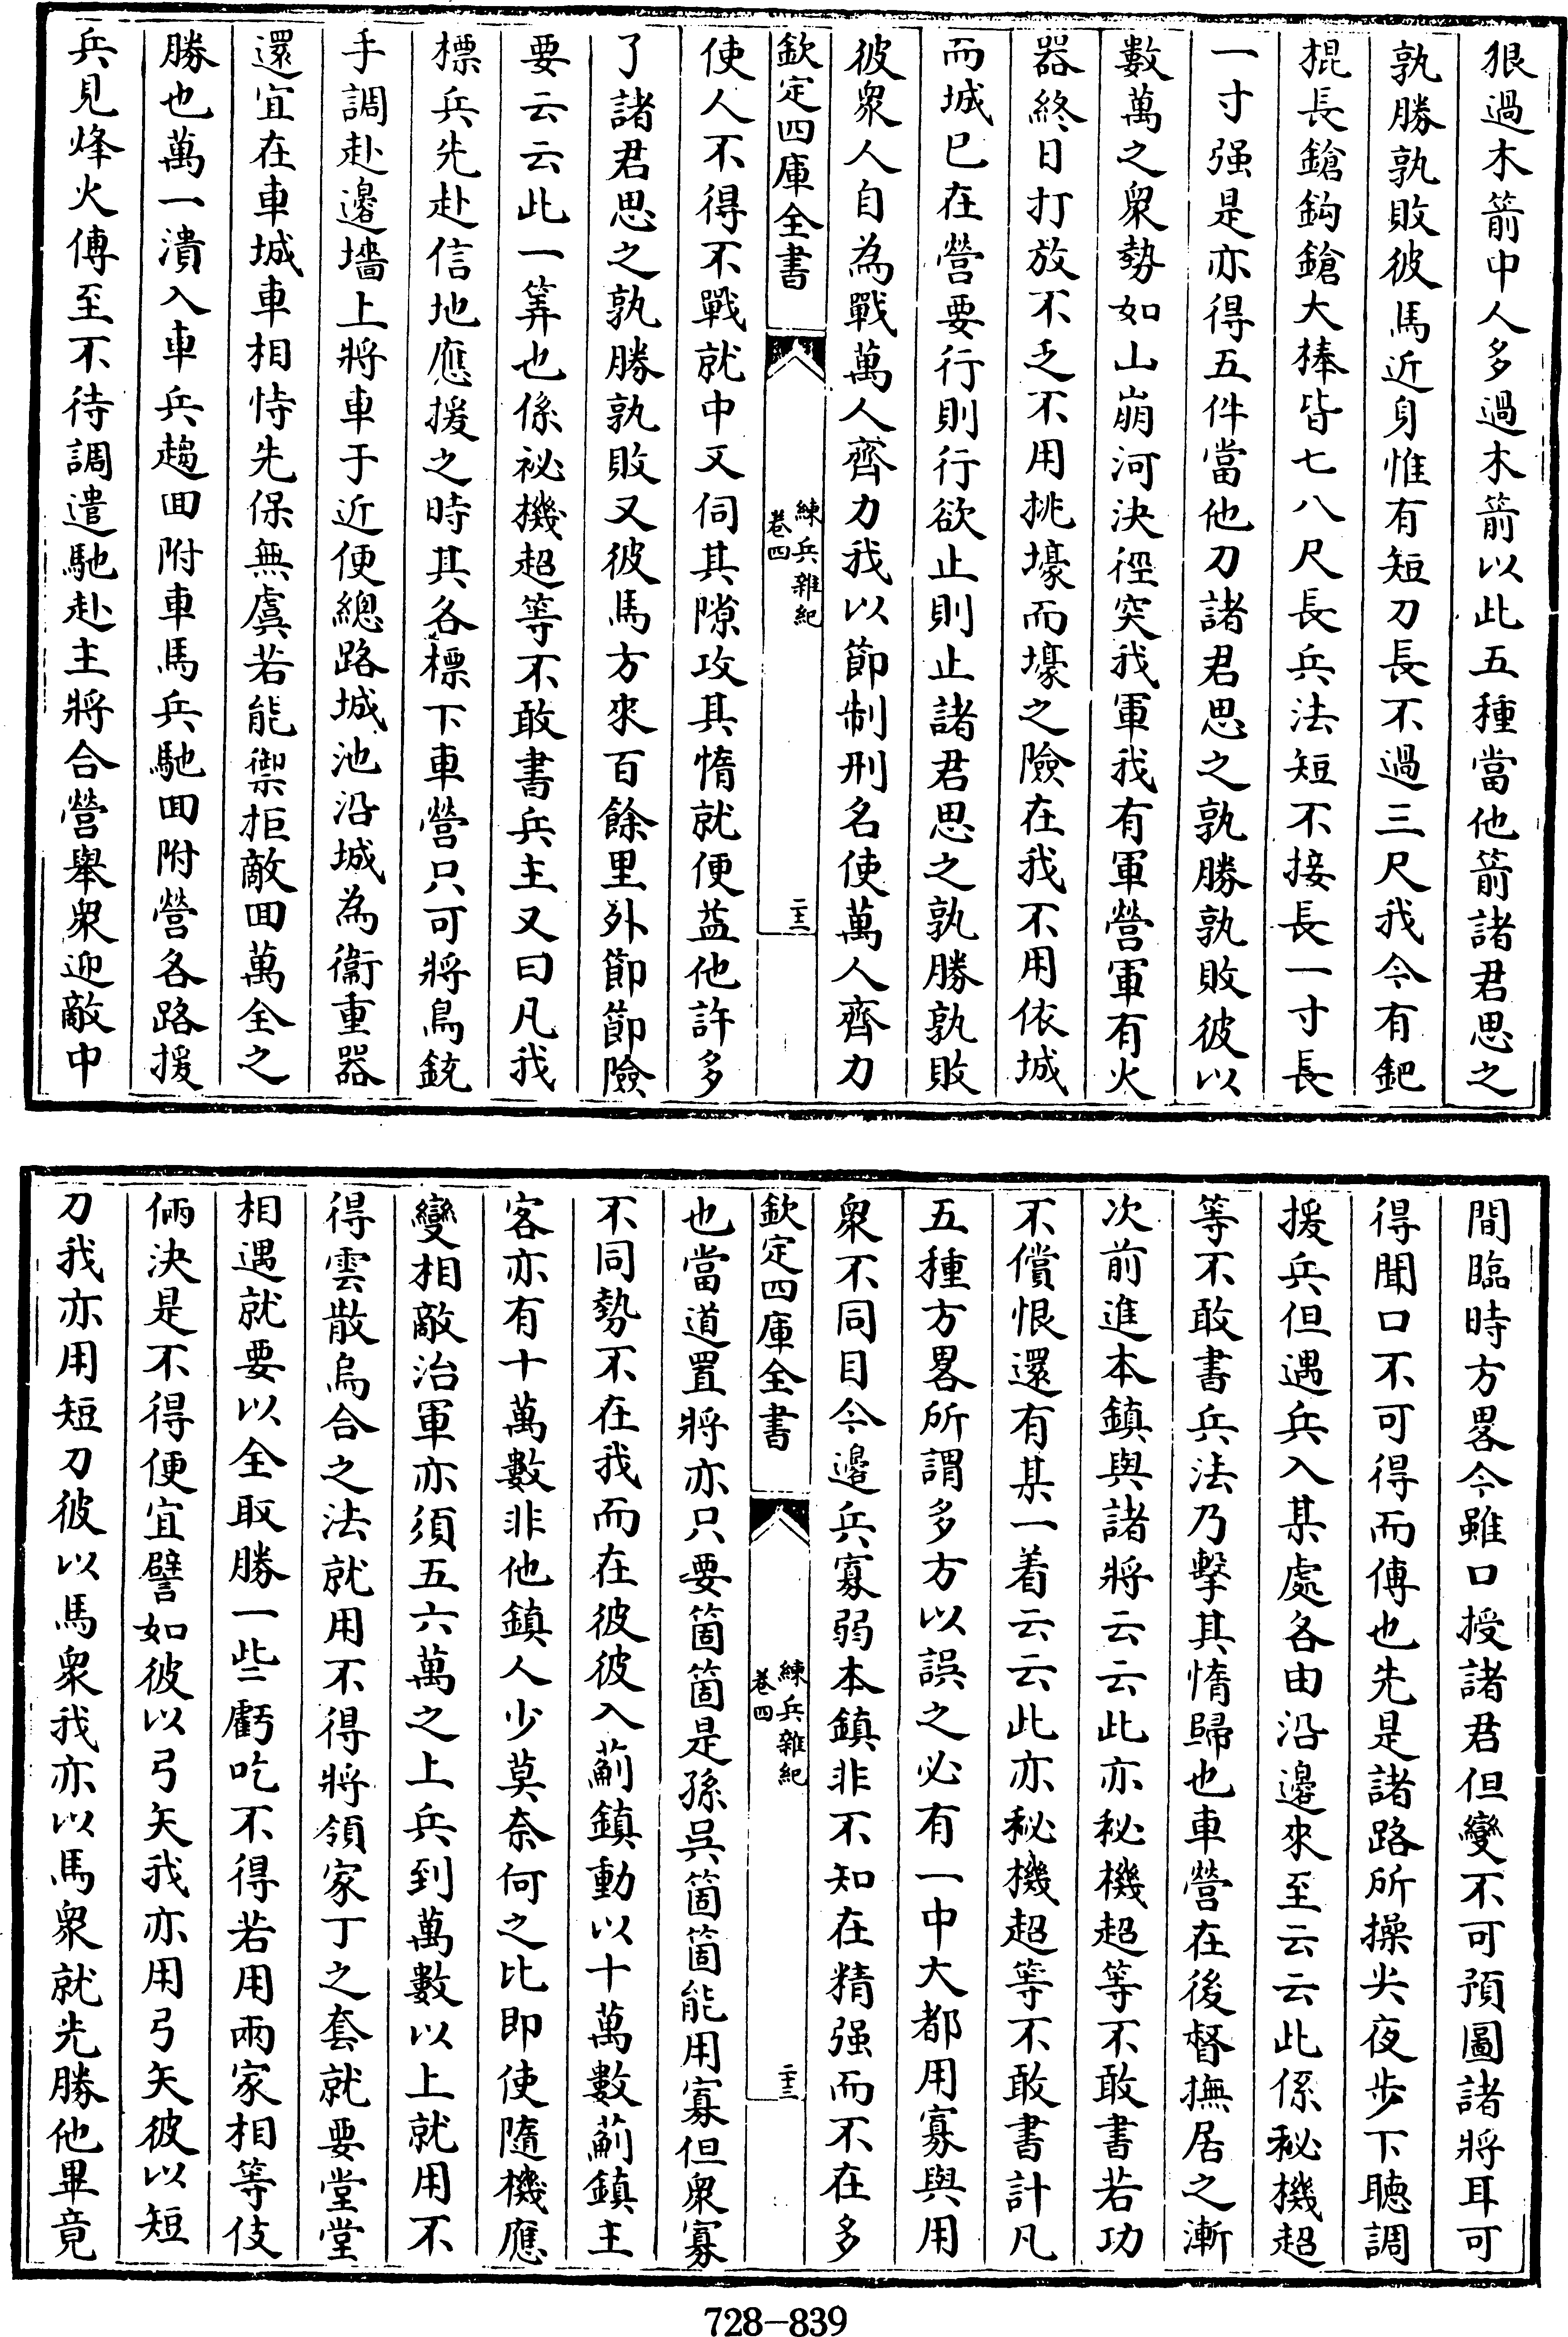 狠過木箭中人多過木箭以此五種當他箭諸君思之
孰勝孰敗彼馬近身惟有短刀長不過三尺我今有鈀
棍長鎗鈎鎗大棒皆七八尺長兵法短不接長一寸長
一寸强是亦得五件當他刀諸君思之孰勝孰敗彼以
數萬之衆勢如山崩河決徑突我軍我有軍營軍有火
器終日打放不乏不用挑壕而壕之險在我不用依城
而城已在營要行則行欲止則止諸君思之孰勝孰敗
彼衆人自為戰萬人齊力我以節制刑名使萬人齊力
欽定四庫全書
練兵雜紀
卷四
二十三
使人不得不戰就中又伺其隙攻其惰就便益他許多
了諸君思之孰勝孰敗又彼馬方來百餘里外節節險
要云云此一筭也係祕機超等不敢書兵主又曰凡我
標兵先赴信地應援之時其各標下車營只可將鳥銃
手調赴邊墻上將車于近便總路城池沿城為衞重器
還宜在車城車相恃先保無虞若能禦拒敵囬萬全之
勝也萬一潰入車兵趨囬附車馬兵馳囬附營各路援
兵見烽火傳至不待調遣馳赴主將合營舉衆迎敵中
間臨時方畧今雖口授諸君但變不可預圖諸將耳可
得聞口不可得而傳也先是諸路所操尖夜步下聽調
援兵但遇兵入某處各由沿邊來至云云此係秘機超
等不敢書兵法乃擊其惰歸也車營在後督撫居之漸
次前進本鎮與諸將云云此亦秘機超等不敢書若功
不償恨還有某一着云云此亦秘機超等不敢書計凡
五種方畧所謂多方以誤之必有一中大都用寡與用
衆不同目今邊兵寡弱本鎮非不知在精强而不在多
欽定四庫全書
練兵雜紀
卷四
二十三
也當道置將亦只要箇箇是孫吳箇箇能用寡但衆寡
不同勢不在我而在彼彼入薊鎮動以十萬數薊鎮主
客亦有十萬數非他鎮人少莫奈何之比即使隨機應
變相敵治軍亦須五六萬之上兵到萬數以上就用不
得雲散烏合之法就用不得將領家丁之套就要堂堂
相遇就要以全取勝一些虧吃不得若用兩家相等伎
倆決是不得便宜譬如彼以弓矢我亦用弓矢彼以短
刀我亦用短刀彼以馬衆我亦以馬衆就先勝他畢竟
728-839